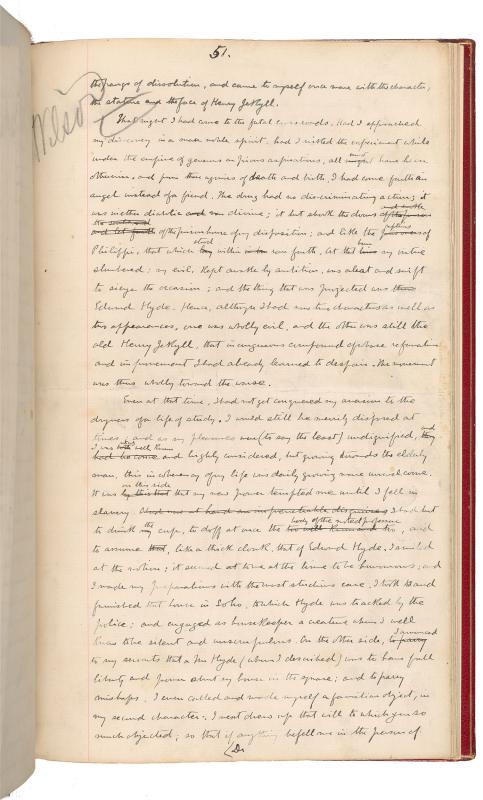 51.
Wilson
the pangs of dissolution, and came to myself once more with the character,
the stature and the face of Henry Jekyll.
That night I had come to the fatal crossroads. Had I approached
my discovery in a more noble spirit, had I risked the experiment while
under the empire of generous or pious aspirations, all must have been
otherwise, and from these agonies of death and birth, I had come forth an
angel instead of a fiend. The drug had no discriminating action; it
was neither diabolic nor divine; it but shook the doors
and let forth of the prisonhouse of my disposition; and like the captives of
Philippi, that which stood within ran forth. At that time my virtue
slumbered; my evil, kept awake by ambition, was alert and swift
to seize the occasion; and the thing that was projected was
Edward Hyde. Hence, although I had now two characters as well as
two appearances, one was wholly evil, and the other was still the
old Henry Jekyll, that incongruous compound of whose reformation
and improvement I had already learned to despair. The movement
was thus wholly toward the worse.
Even at that time, I had not yet conquered my aversion to the
dryness of a life of study. I would still be merrily disposed at
times; and as my pleasures were (to say the least) undignified, and
I was well known
and highly considered, but growing towards the elderly
man, this incoherency of my life was daily growing more unwelcome.
on this side
It was that my new power tempted me until I fell in
slavery. I had but
to drink the cup, to doff at once the body of the noted professor, and
to assume, like a thick cloak, that of Edward Hyde. I smiled
at the notion; it seemed to me at the time to be humorous; and
I made my preparations with the most studious care. I took and
furnished that house in Soho, to which Hyde was tracked by the
police; and engaged as housekeeper a creature whom I well
knew to be silent and unscrupulous. On the other side, I announced
to my servants that a Mr Hyde (whom I described) was to have full
liberty and power about my house in the square; and to parry
mishaps, I even called and made myself a familiar object, in
my second character. I next drew up that will to which you so
much objected; so that if anything befell me in the person of